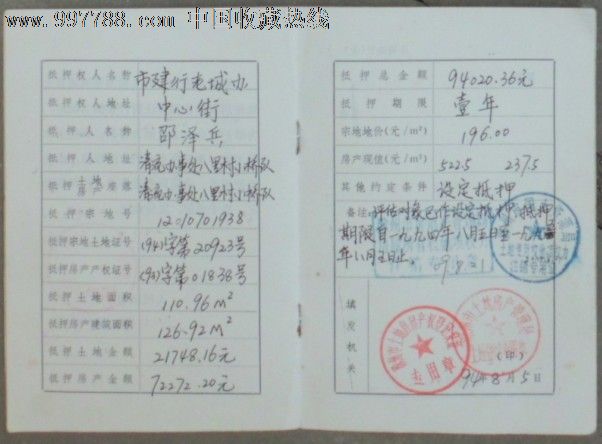 www.997788.com 中国收藏热线
抵押权人名称 市建行老城办
抵押权人地址 中心街
抵押人名称 邵泽兵
抵押人地址 清充办事处八里村小桥队
抵押土地房产座落 清充办事处八里村小桥队
抵押宗地号 12010701938
抵押宗地土地证号 (94)字第20923号
抵押房产产权证号 (93)字第01838号
抵押土地面积 110.96m²
抵押房产建筑面积 126.92m²
抵押土地金额 21748.16元
抵押房产金额 72272.20元
抵押总金额 94020.36元
抵押期限 壹年
宗地地价(元/m²) 196.00
房产现值(元/m²) 522.5 237.5
其他约定条件 设定抵押
备注:评估对象已作设定抵押,抵押
期限自一九九四年八月五日至一九九
年八月五日止。
填发机关
(印)
94年8月5日